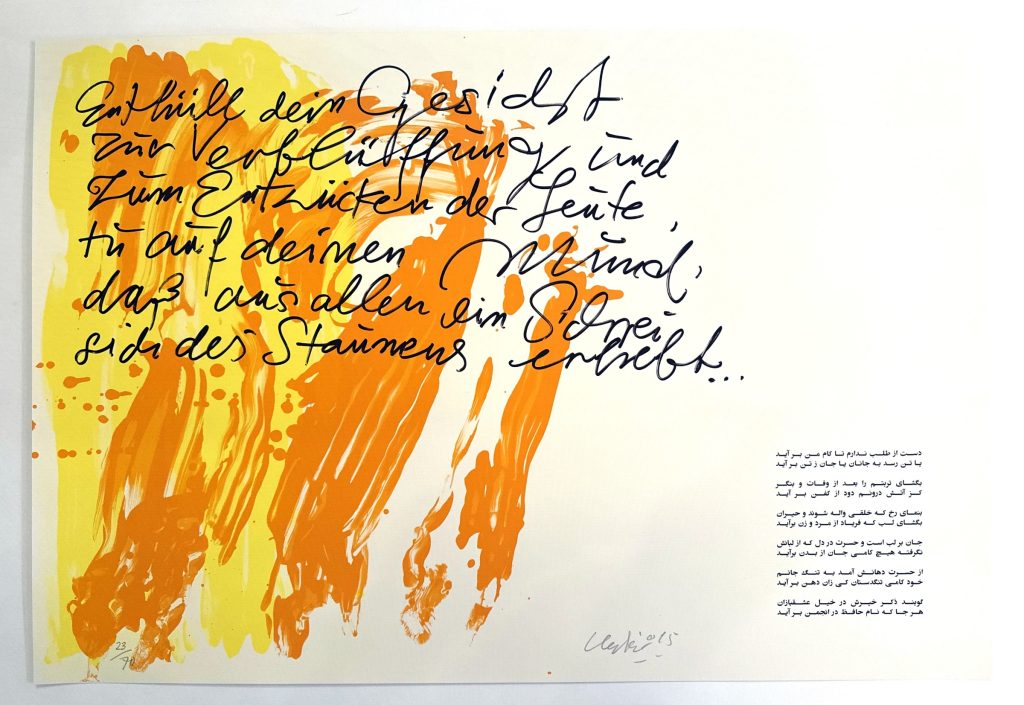 Enthüll dein Gesicht
zur Verblüffung und
zum Entzücken der Leute,
tu auf deinen Mund,
daß aus allen ein Schrei
sich des Staunens erhebt...
دست از طلب ندارم تا کام من بر آید
یا تن رسد به جانان یا جان ز تن بر آید
بگشای تربتم را بعد از وفات و بنگر
کز آتش درونم دود از کفن بر آید
بنمای رخ که خلقی واله شوند و حیران
بگشای لب که فریاد از مرد و زن برآید
جان بر لب است و حسرت در دل که از لبانش
نگرفته هیچ کامی جان از بدن برآید
از حسرت دهانش آمد به تنگ جانم
خود کامی تنگدستان کی زان دهن بر آید
گویند ذکر خیرش در خیل عشقبازان
هر جا که نام حافظ در انجمن بر آید
23/70